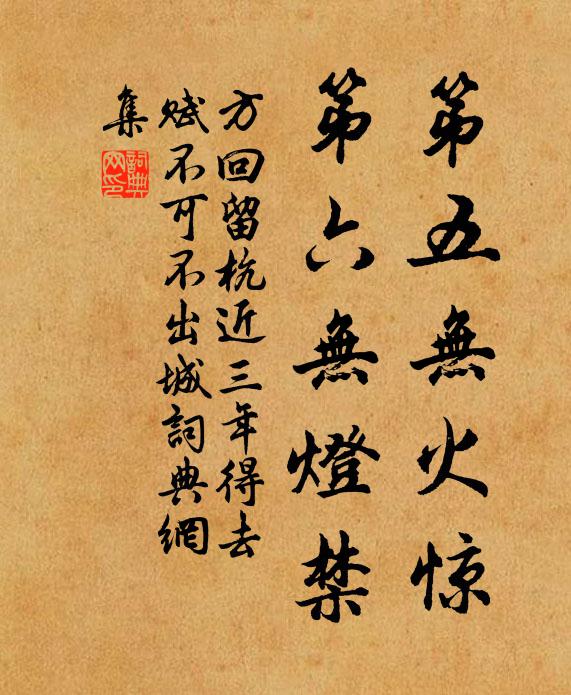 第五無火惊
第六無燈禁
方回留杭近三年得去
赋不可不出城詞典網
集
詞典
网印